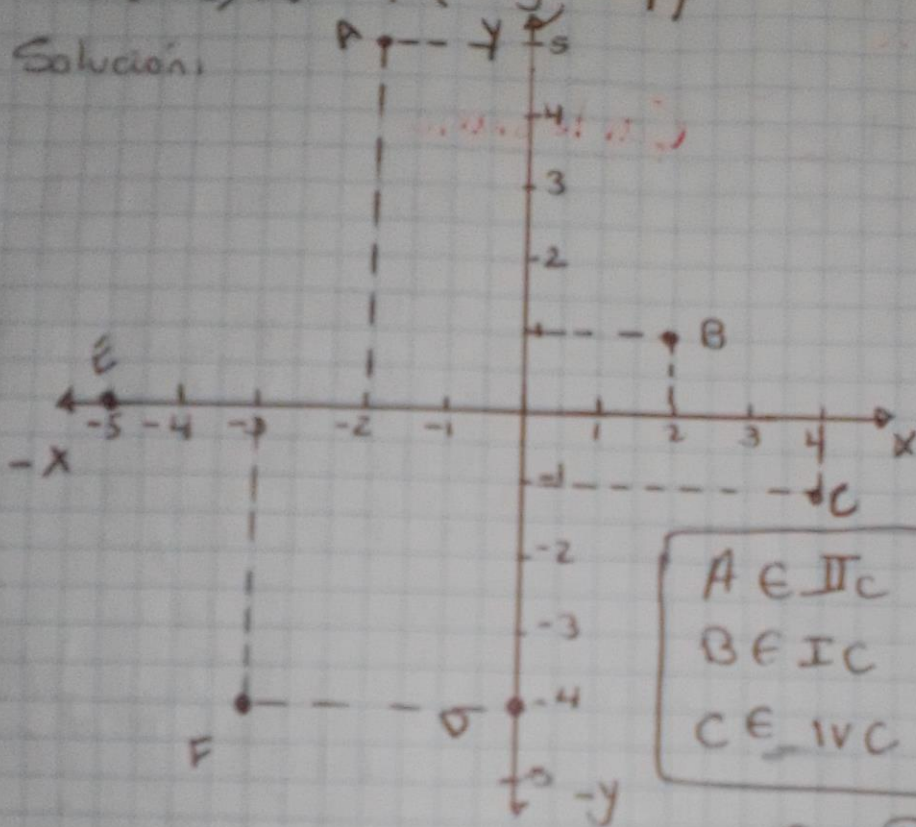 Solución.
A
y
5
4
3
2
1
B
E
-5 -4 -3 -2 -1 1 2 3 4
-x
x
-1
C
-2
-3
-4
D
F
-y
A ∈ II C
B ∈ I C
C ∈ IV C